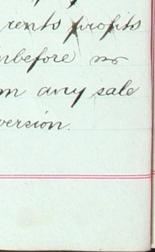 rents profits
nbefore no
m any sale
version.